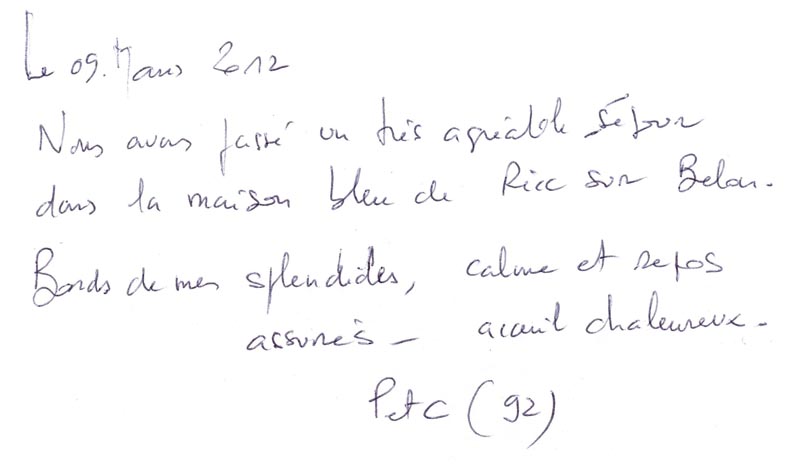 Le 09. Mars 2012
Nous avons passé un très agréable séjour
dans la maison bleu de Riec sur Belon.
Bords de mer splendides, calme et repos
assurés - acueil chaleureux.
P et C (92)